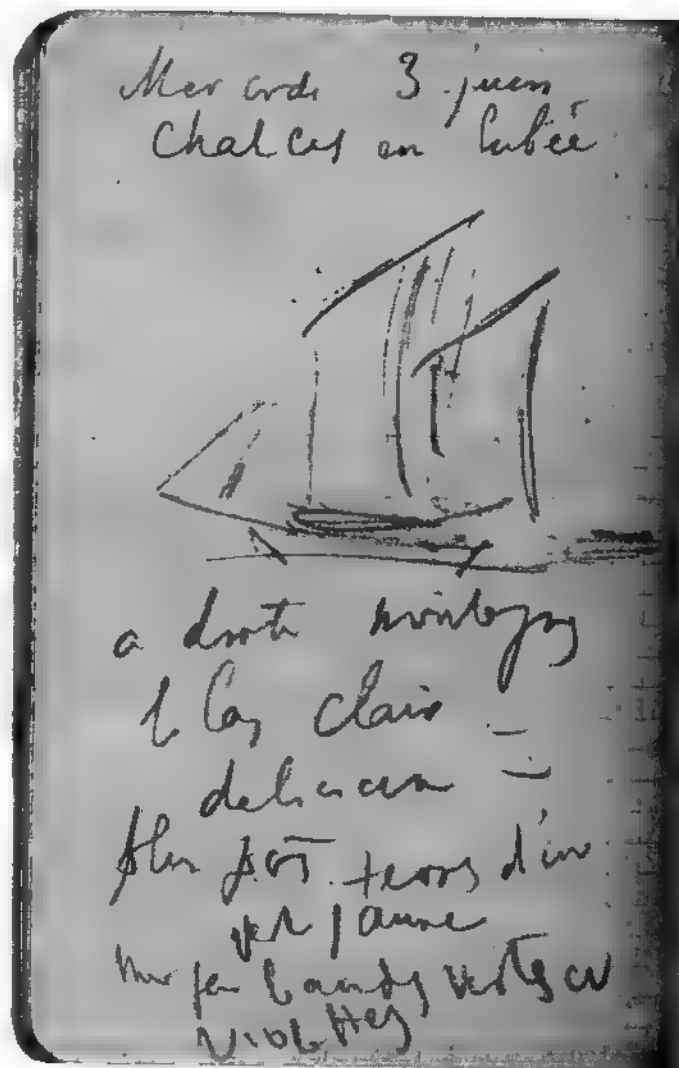 Mercredi 3 juin
Chalcis en Eubée
a droite montagnes
lilas clair
delicieux
plus près terres d'un
vert jaune
mer par bandes vertes et
violettes